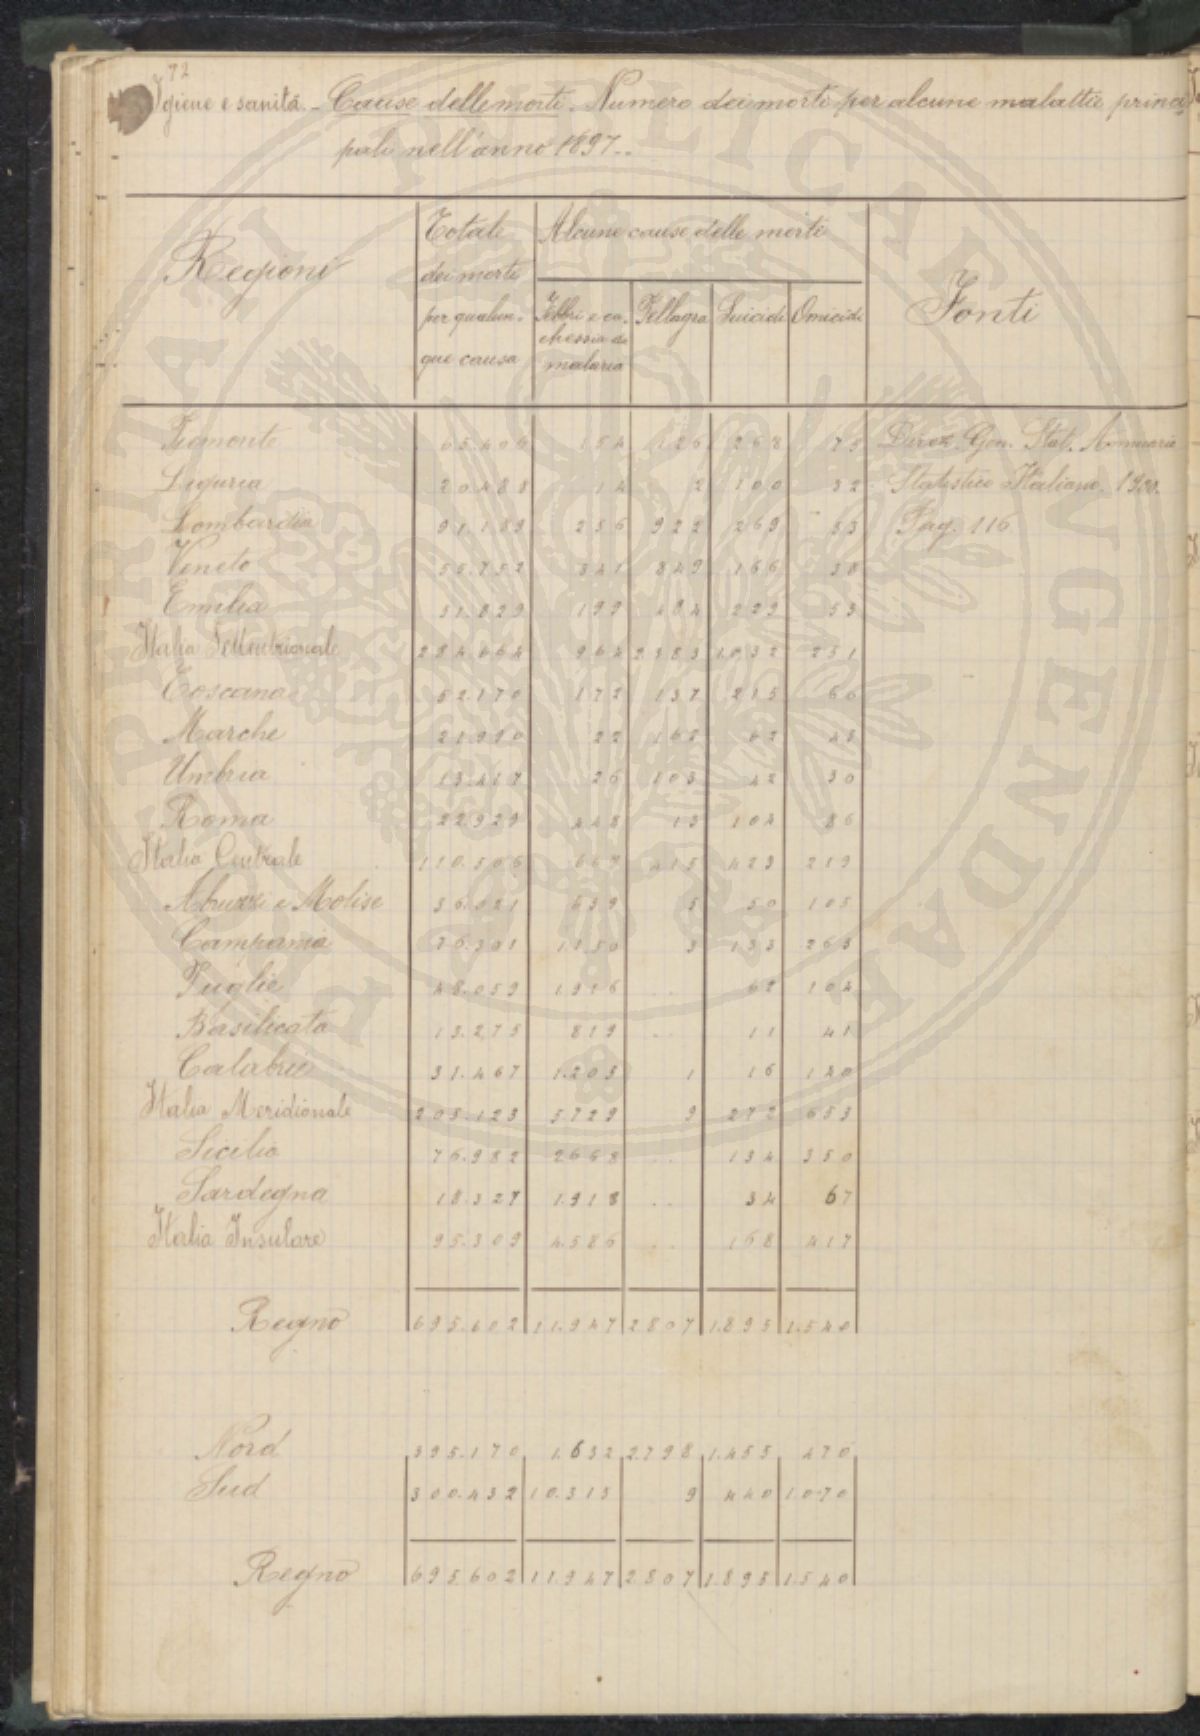 72
Igiene e sanità. - Cause delle morti. Numero dei morti per alcune malattie princi
pali nell'anno 1897..
Regioni Totale dei morti per qualun- que causa Alcune cause delle morti Fonti
Febbri e ca- chessia da malaria Pellagra Suicidi Omicidi
Piemonte 65.406 154 126 268 75 Direz. Gen. Stat. Annuario
Liguria 20.488 14 2 100 32 Statistico Italiano. 1900.
Lombardia 91.189 256 922 269 53 Pag. 116
Veneto 55.752 341 849 166 38
Emilia 51.829 199 484 229 53
Italia Settentrionale 284.664 964 2383 1.032 251
Toscana 52.170 172 137 215 66
Marche 21.990 22 162 62 43
Umbria 13.417 26 103 42 30
Roma 22.929 448 13 104 80
Italia Centrale 110.506 668 415 423 219
Abruzzi e Molise 36.021 639 5 50 105
Campania 76.301 1.150 3 133 263
Puglie 48.059 1.916 .. 62 104
Basilicata 13.275 819 .. 11 41
Calabrie 31.467 1.205 1 16 140
Italia Meridionale 205.123 5729 9 272 653
Sicilia 76.982 2668 .. 134 350
Sardegna 18.327 1.918 .. 34 67
Italia Insulare 95.309 4.586 .. 168 417
Regno 695.602 11.947 2807 1.895 1.540
Nord 395.170 1.632 2.798 1.455 470
Sud 300.432 10.315 9 440 1070
Regno 695.602 11.947 2807 1.895 1.540